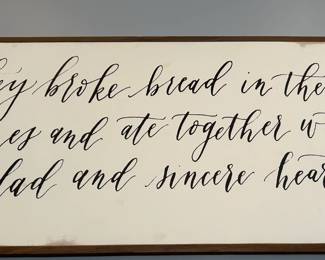 ey broke bread in the
es and ate together w
lad and sincere hear